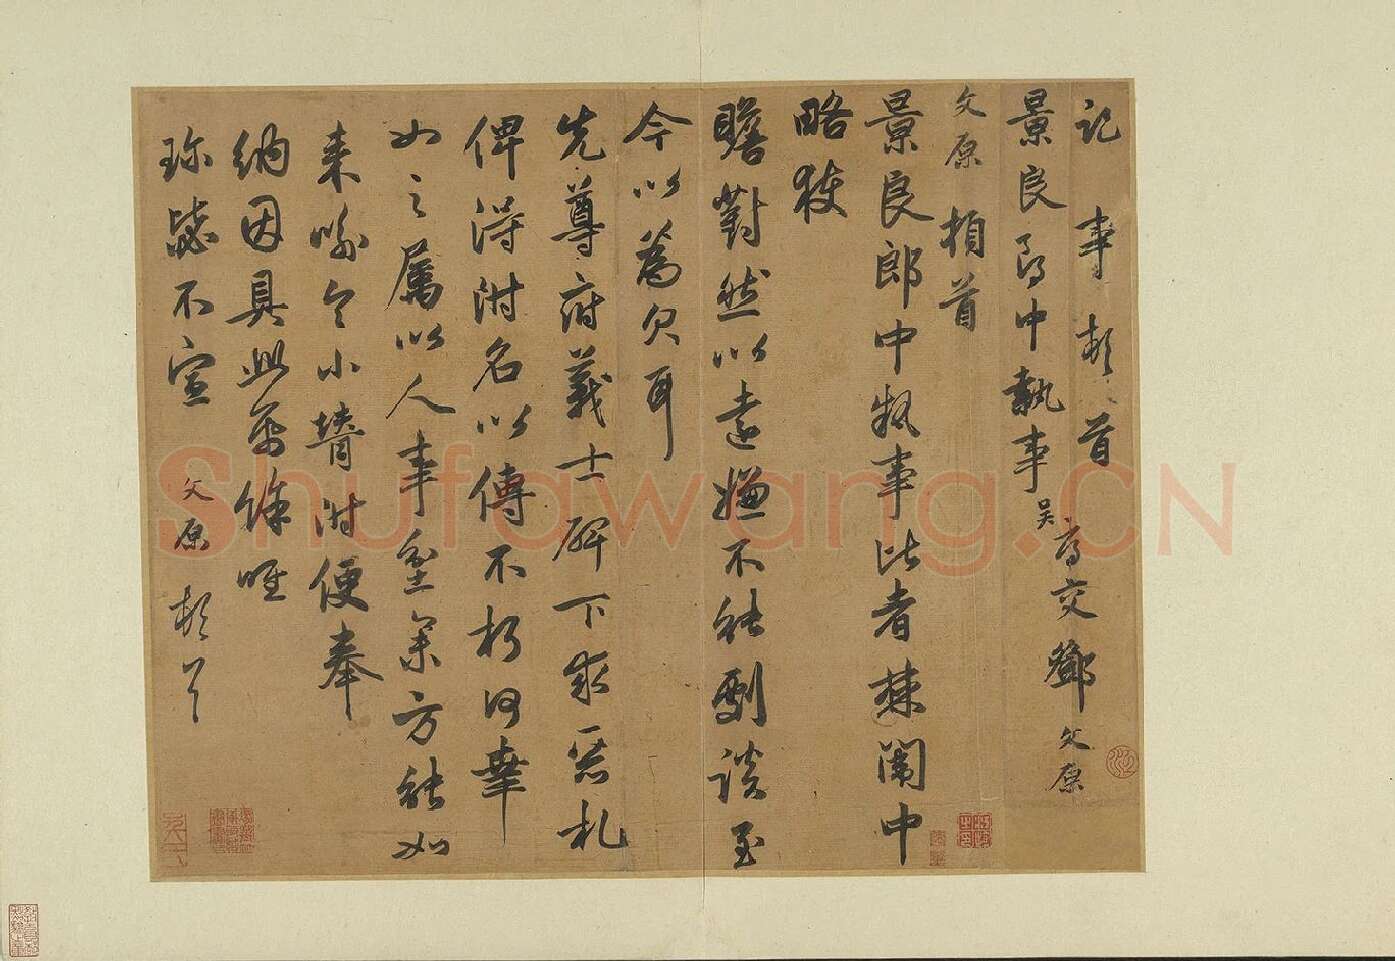 記事頓首
景良郎中執事 吳 交鄧文原
文原頓首
景良郎中執事比者棘闈中
略獲
瞻對然以遠嫌不能劇談至
今以為欠耳
先尊府義士碑下求惡札
俾得附名以傳不朽何幸
如之屬以人事坌集方能如
來喻令小胥附便奉
納因具此容餘唯
珍毖不宣 文原頓首
Shufawang.CN